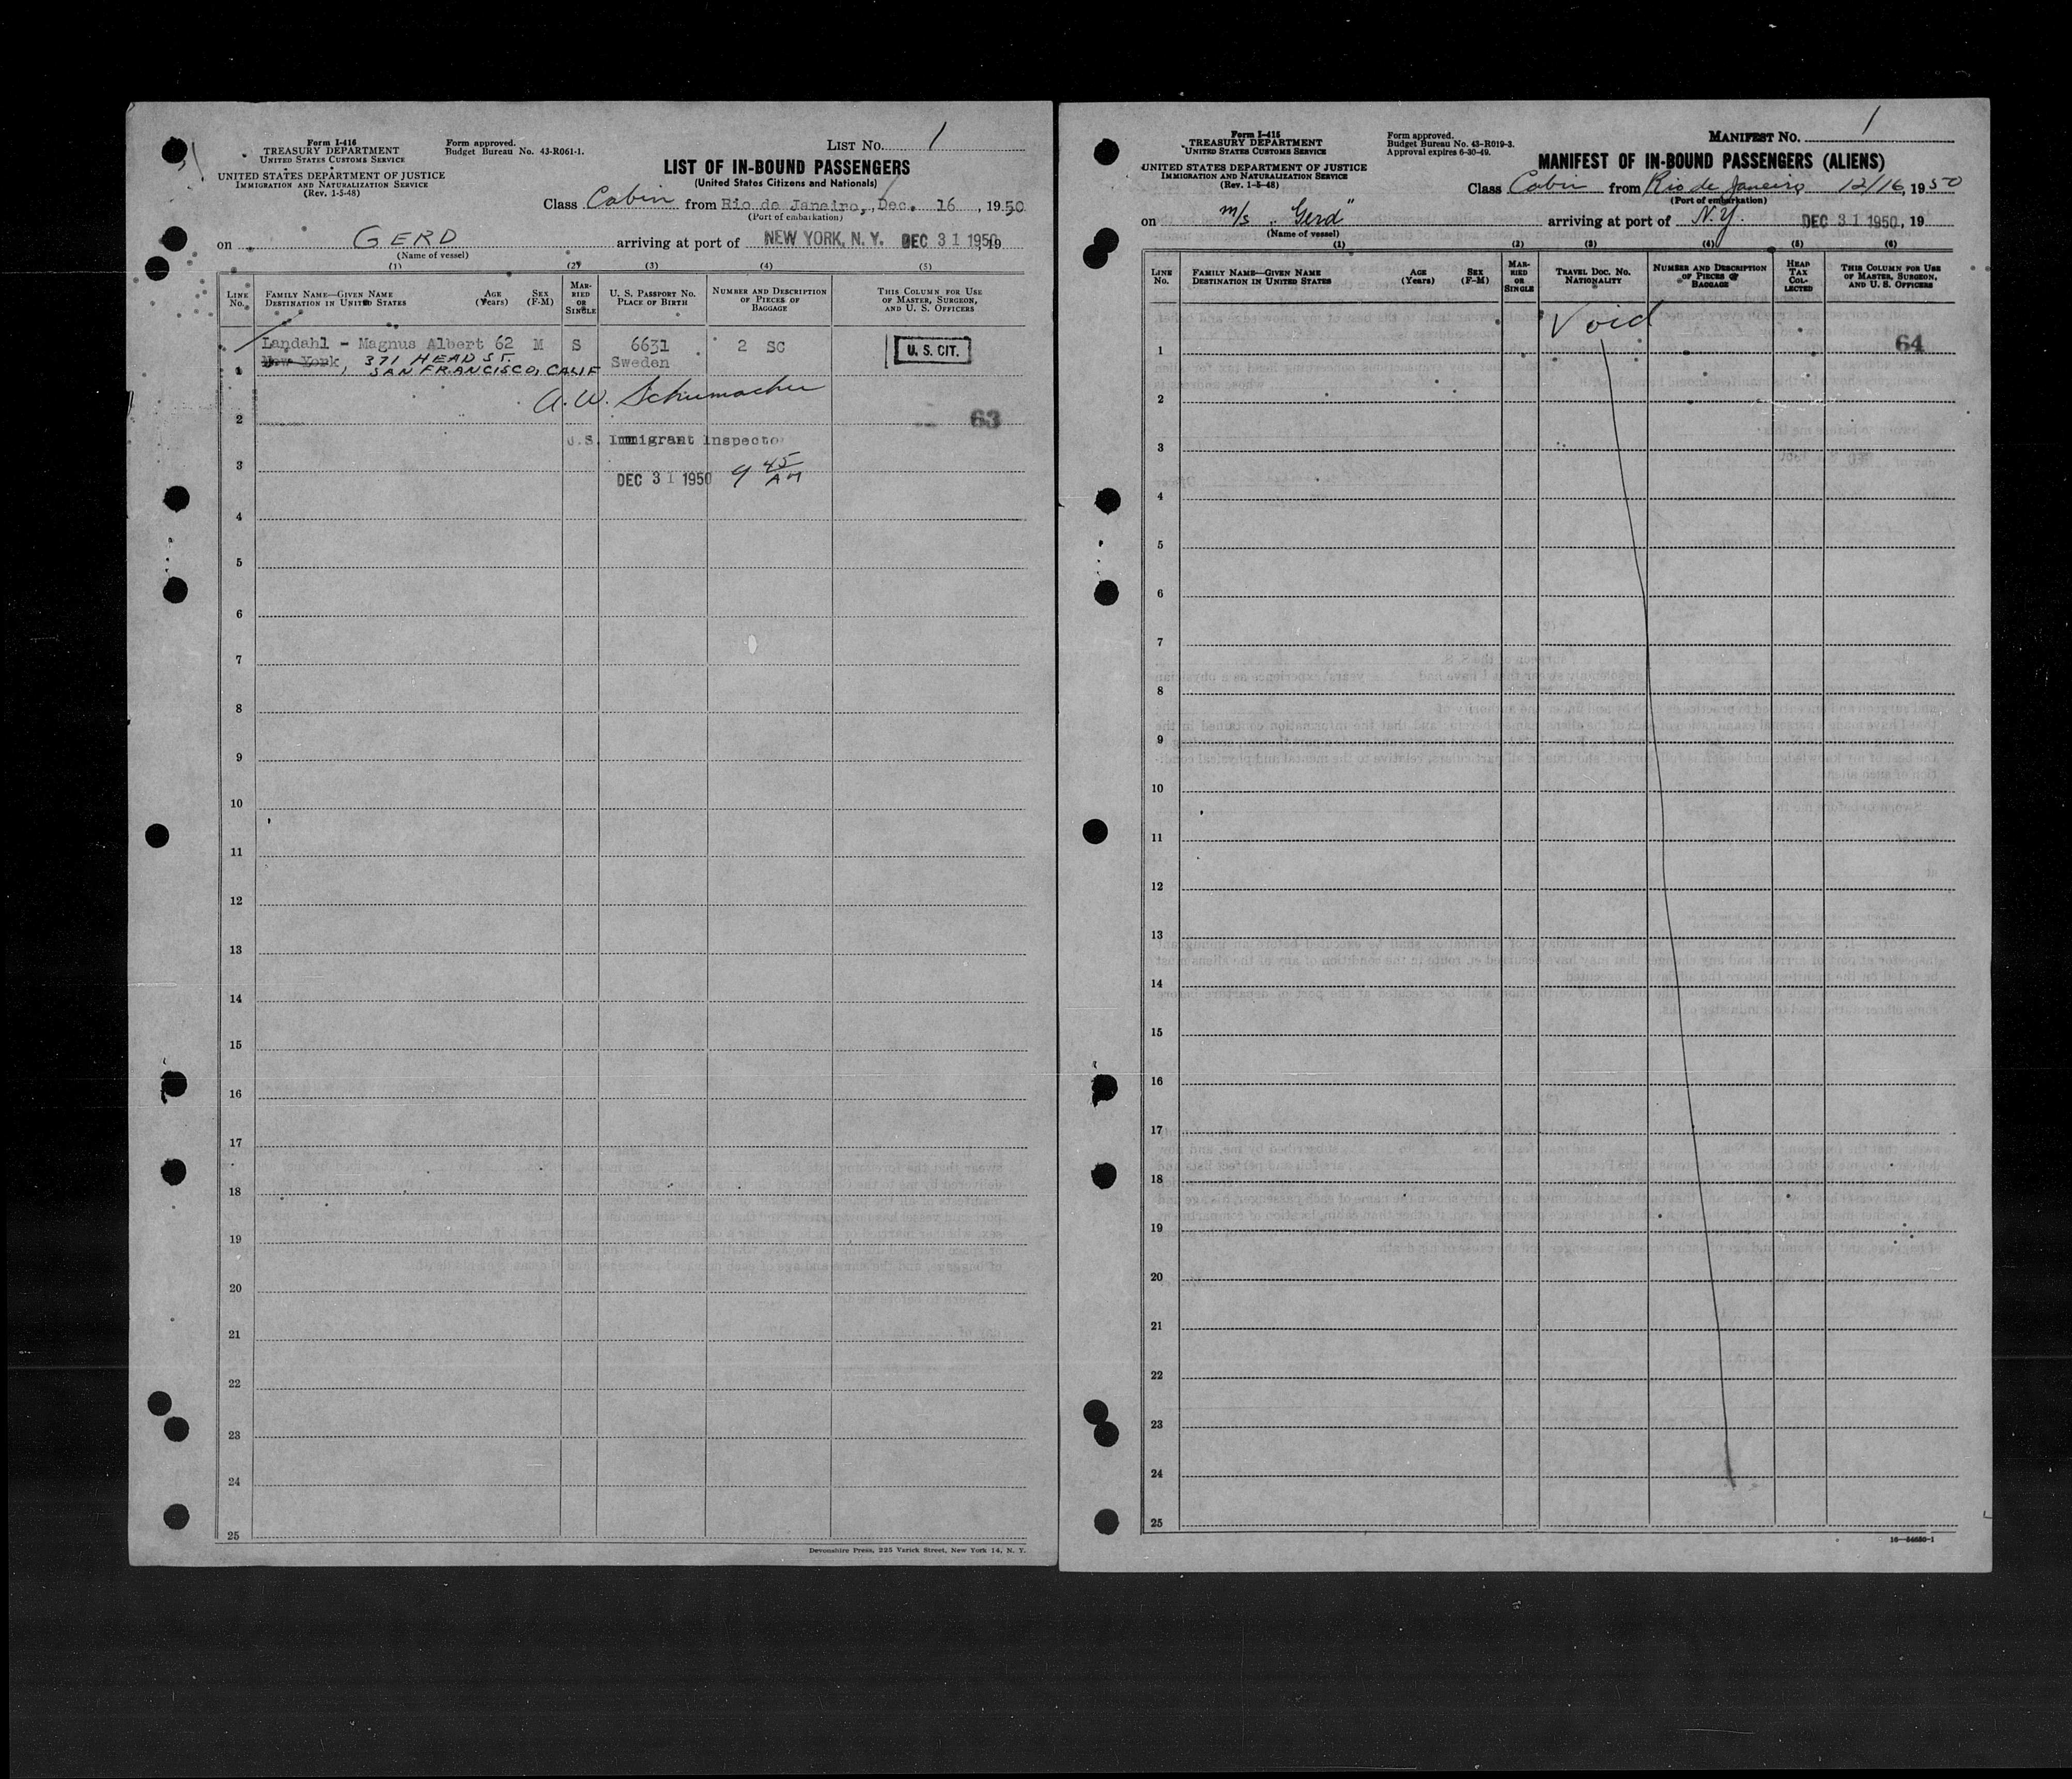 Form I-416
TREASURY DEPARTMENT
UNITED STATES CUSTOMS SERVICE
UNITED STATES DEPARTMENT OF JUSTICE
IMMIGRATION AND NATURALIZATION SERVICE
(Rev. 1-5-48)
Form approved.
Budget Bureau No. 43-R061-1.
LIST No. 1
LIST OF IN-BOUND PASSENGERS
(United States Citizens and Nationals)
Class Cabin from Rio de Janeiro, Dec. 16, 1950
(Port of embarkation)
on GERD arriving at port of NEW YORK, N. Y. DEC 31 1950, 19
(Name of vessel)
(1) (2) (3) (4) (5)
LINE No. FAMILY NAME—GIVEN NAME DESTINATION IN UNITED STATES AGE (Years) SEX (F-M) MARRIED OR SINGLE U. S. PASSPORT NO. PLACE OF BIRTH NUMBER AND DESCRIPTION OF PIECES OF BAGGAGE THIS COLUMN FOR USE OF MASTER, SURGEON, AND U. S. OFFICERS
Landahl - Magnus Albert 62 M S 6631 2 SC U. S. CIT.
1 New York, 371 HEAD ST. Sweden
SAN FRANCISCO, CALIF
A. W. Schumacher
2 63
U.S. Immigrant Inspector
3 DEC 31 1950 9 45 AM
4
5
6
7
8
9
10
11
12
13
14
15
16
17
18
19
20
21
22
23
24
25
Devonshire Press, 225 Varick Street, New York 14, N. Y.
Form I-415
TREASURY DEPARTMENT
UNITED STATES CUSTOMS SERVICE
UNITED STATES DEPARTMENT OF JUSTICE
IMMIGRATION AND NATURALIZATION SERVICE
(Rev. 1-5-48)
Form approved.
Budget Bureau No. 43-R019-3.
Approval expires 6-30-49.
MANIFEST No. 1
MANIFEST OF IN-BOUND PASSENGERS (ALIENS)
Class Cabin from Rio de Janeiro 12/16, 1950
(Port of embarkation)
on m/s "Gerd" arriving at port of N.Y. DEC 31 1950, 19
(Name of vessel)
(1) (2) (3) (4) (5) (6)
LINE No. FAMILY NAME—GIVEN NAME DESTINATION IN UNITED STATES AGE (Years) SEX (F-M) MARRIED OR SINGLE TRAVEL DOC. NO. NATIONALITY NUMBER AND DESCRIPTION OF PIECES OF BAGGAGE HEAD TAX COLLECTED THIS COLUMN FOR USE OF MASTER, SURGEON, AND U. S. OFFICERS
Void
1 64
2
3
4
5
6
7
8
9
10
11
12
13
14
15
16
17
18
19
20
21
22
23
24
25